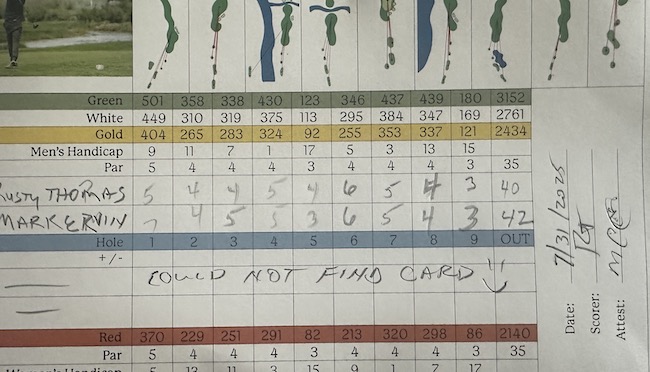 Green 501 358 338 430 123 346 437 439 180 3152
White 449 310 319 375 113 295 384 347 169 2761
Gold 404 265 283 324 92 255 353 337 121 2434
Men's Handicap 9 11 7 1 17 5 3 13 15
Par 5 4 4 4 3 4 4 4 3 35
RUSTY THOMAS 5 4 4 5 4 6 5 4 3 40
MARK ERVIN 7 4 5 5 3 6 5 4 3 42
Hole 1 2 3 4 5 6 7 8 9 OUT
+/-
COULD NOT FIND CARD
Red 370 229 251 291 82 213 320 298 86 2140
Par 5 4 4 4 3 4 4 4 3 35
Women's Handicap 5 13 11 3 15 9 1 7 17
Date: 7/31/2025
Scorer: RT
Attest: